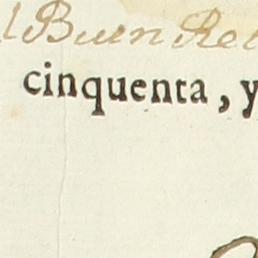 l Buen Re
cinquenta, y